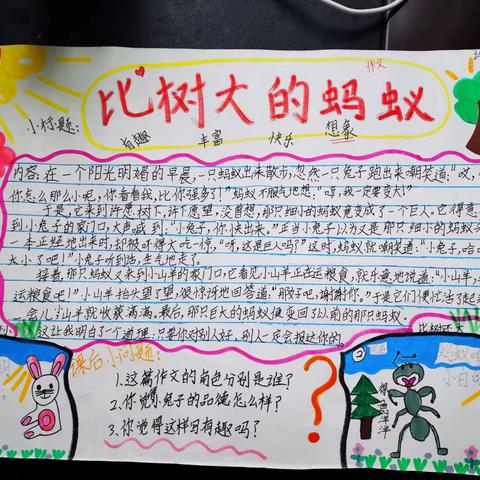 作文
比树大的蚂蚁
小标题：
有趣 丰富 快乐 想象
内容：在一个阳光明媚的早晨，一只蚂蚁出来散步，忽然一只兔子跑出来嘲笑道："哎，
你怎么那么小呢，你看看我，比你强多了！"蚂蚁不服气地想："哼，我一定要变大！"
于是，它来到许愿树下，许下愿望，没曾想，那只细小的蚂蚁竟变成了一个巨人。它得意
到小兔子的家门口，大声喊到："小兔子，你快出来。"正当小兔子以为又是那只细小的蚂蚁
一本正经地出来时，却被吓得大吃一惊，"呀，这是巨人吗？"这时，蚂蚁就嘲笑道："小兔子，哈
太小了吧！"小兔子听到后，生气地走了。
接着，那只蚂蚁又来到小山羊的家门口，它看见小山羊正在运粮食，就乐意地说道："小山羊，
运粮食吧！"小山羊抬头望了望，很惊讶地回答道："那好吧，谢谢你。"于是它们便忙活了起来
一会儿，小羊就收获满满，最后，那只巨大的蚂蚁便变回了以前的那只蚂蚁。
这让我明白了一个道理：只要你对别人好，别人一定会报达你的。
比树大
课后小问题：
1、这篇作文的角色分别是谁？
2、你觉得小兔子的品德怎么样？
3、你觉得这样写有趣吗？
?
②
蚂蚁
小白兔
得意洋洋